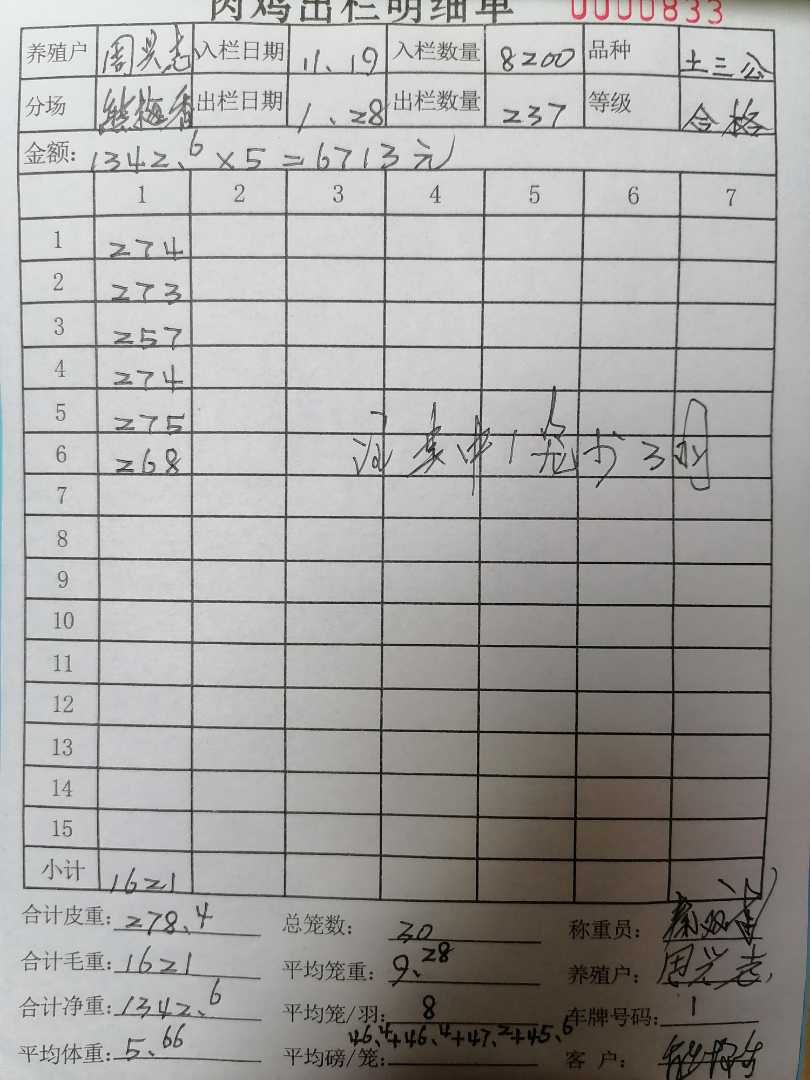 肉鸡出栏明细单 0000833
养殖户 周兴志 入栏日期 11、19 入栏数量 8200 品种 土三公
分场 熊梅香 出栏日期 1、28 出栏数量 237 等级 合格
金额: 1342.6×5=6713元
1 2 3 4 5 6 7
1 274
2 273
3 257
4 274
5 275
6 268
7
8
9
10
11
12
13
14
15
小计 1621
合计皮重: 278.4 总笼数: 30 称重员:
合计毛重: 1621 平均笼重: 9.28 养殖户: 周兴志
合计净重: 1342.6 平均笼/羽: 8 车牌号码: 1
46.4+46.4+47.2+45.6
平均体重: 5.66 平均磅/笼: 客 户: